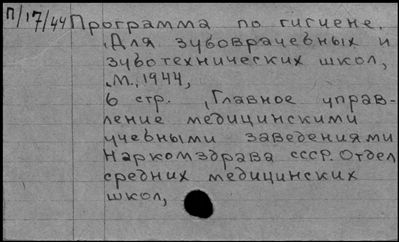 П/17/44 Программа по гигиене.
Для зубоврачебных и
зуботехнических школ,
М., 1944,
6 стр. , Главное управ-
ление медицинскими
учебными заведениями
Наркомздрава СССР. Отдел
средних медицинских
школ,